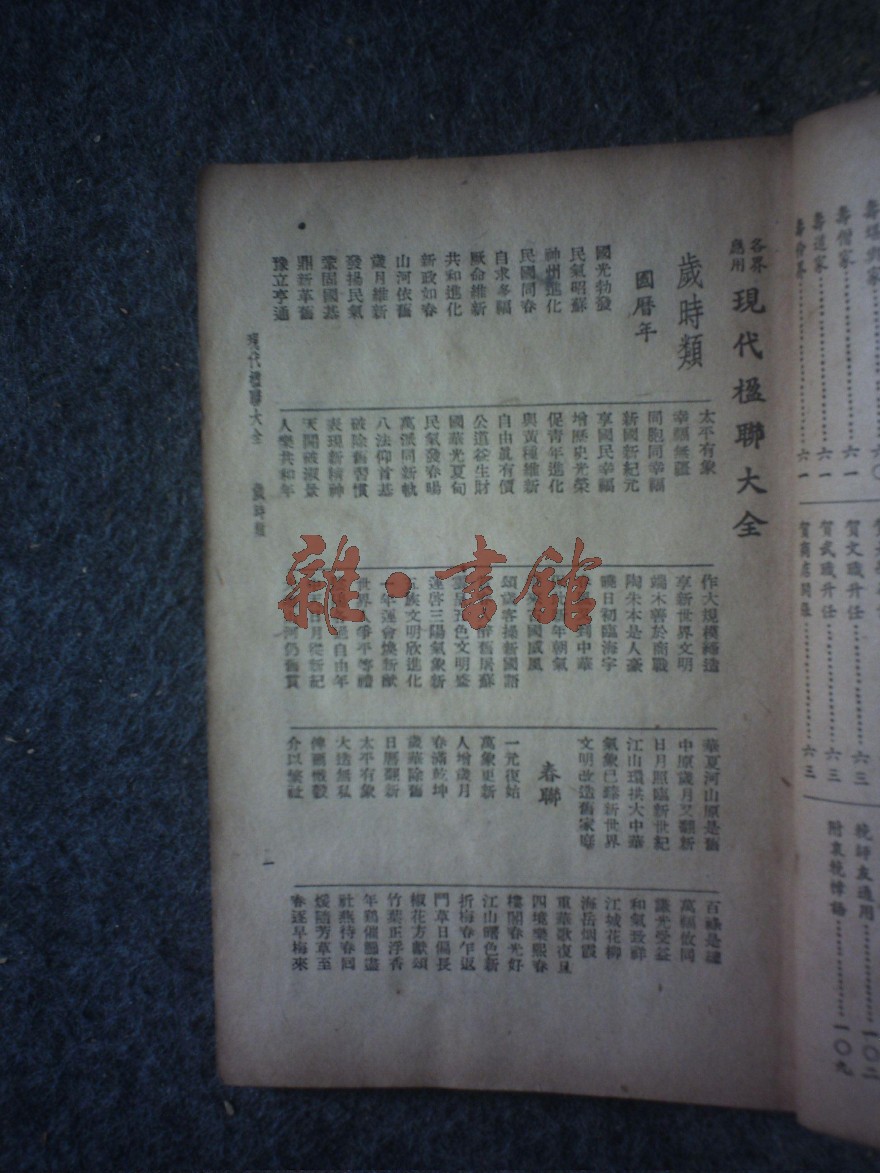 各界應用
現代楹聯大全
歲時類
國曆年
國光勃發
民氣昭蘇
神州進化
民國同春
自求多福
厥命維新
共和進化
新政如春
山河依舊
歲月維新
發揚民氣
鞏固國基
鼎新革舊
豫立亨通
太平有象
幸福無疆
同胞同幸福
新國新紀元
享國民幸福
增歷史光榮
促青年進化
與黃種維新
自由眞有價
公道在生財
國華光夏甸
民氣發春暘
萬派同新軌
八法仰首基
破除舊習慣
表現新精神
天開淑景
人樂共和年
作大規模締造
享新世界文明
端木善於商戰
陶朱本是人豪
曉日初臨海宇
中華
年朝氣
國威風
頌歲客操新國語
舊屠蘇
五色文明盛
啓三陽氣象新
五族文明欣進化
一年運會煥新猷
世界人爭平等禮
自由年
日月從新紀
河仍舊貫
華夏河山原是舊
中原歲月又翻新
日月照臨新世紀
江山環拱大中華
氣象已臻新世界
文明改造舊家庭
春聯
一元復始
萬象更新
人增歲月
春滿乾坤
歲華除舊
日曆翻新
太平有象
大造無私
俾爾戩穀
介以繁祉
百祿是遒
萬福攸同
謙光受益
和氣致祥
江城花柳
海岳烟霞
重華歌復旦
四境樂熙春
樓閣春光好
江山曙色新
折梅春乍返
門草日偏長
椒花方獻頌
竹葉正浮香
年鷄催臘盡
社燕待春回
煖隨芳草至
春逐早梅來
現代楹聯大全 歲時類
一
雜·書館
壽僧家 六一
壽道家 六一
賀文職升任 六三
賀武職升任 六三
賀商店開張 六三
輓師友通用 一〇二
附哀輓悼語 一〇九